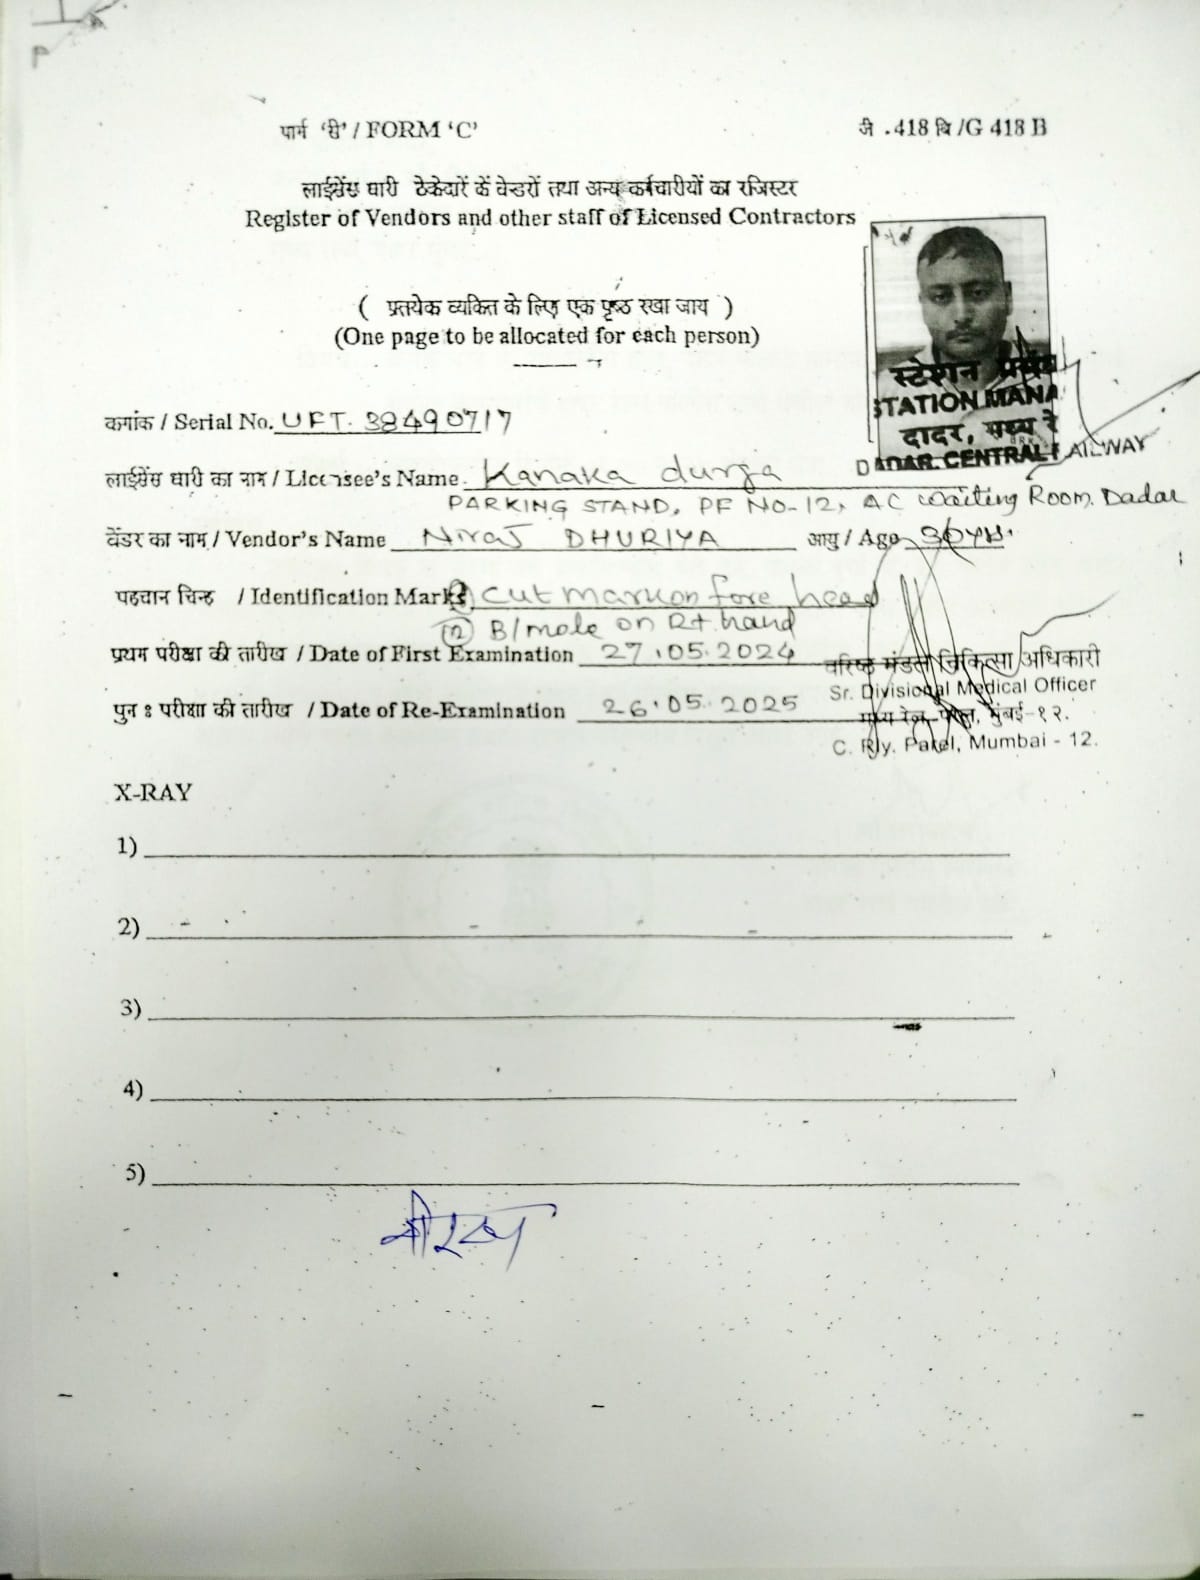 पार्म 'सी' / FORM 'C'
जी .418 बि /G 418 B
लाईसेंस घारी ठेकेदारें कें वेन्डरों तथा अन्य कर्मचारीयों का रजिस्टर
Register of Vendors and other staff of Licensed Contractors
( प्रतयेक व्यकित के लिए एक पृष्ठ रखा जाय )
(One page to be allocated for each person)
स्टेशन प्रबंध
STATION MANA
दादर, मध्य रे
DADAR. CENTRAL RAILWAY
कगांक / Serial No. UFT. 38490717
लाईसेंस घारी का नाम / Licensee's Name. Kanaka durga
PARKING STAND, PF NO-12, AC Waiting Room. Dadar
वेंडर का नाम / Vendor's Name Niraj DHURIYA आयु / Age 30 yrs.
पहचान चिन्ह / Identification Marks ① cut mark on fore head
② B/mole on Rt hand
प्रथम परीक्षा की तारीख / Date of First Examination 27.05.2024
पुन ः परीक्षा की तारीख / Date of Re-Examination 26.05.2025
वरिष्ठ मंडल चिकित्सा अधिकारी
Sr. Divisional Medical Officer
मध्य रेल, परेल, मुंबई-१२.
C. Rly. Parel, Mumbai - 12.
X-RAY
1)
2)
3)
4)
5)